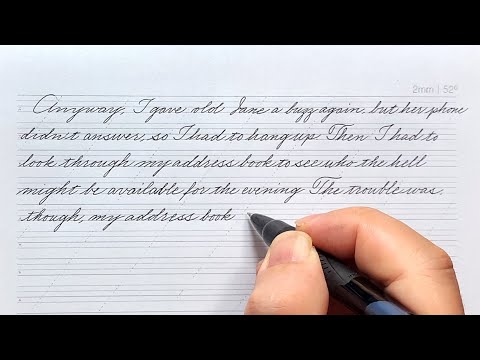 2mm | 52°
Anyway, I gave old Jane a buzz again, but her phone
didn't answer, so I had to hang up. Then I had to
look through my address book to see who the hell
might be available for the evening. The trouble was
though, my address book